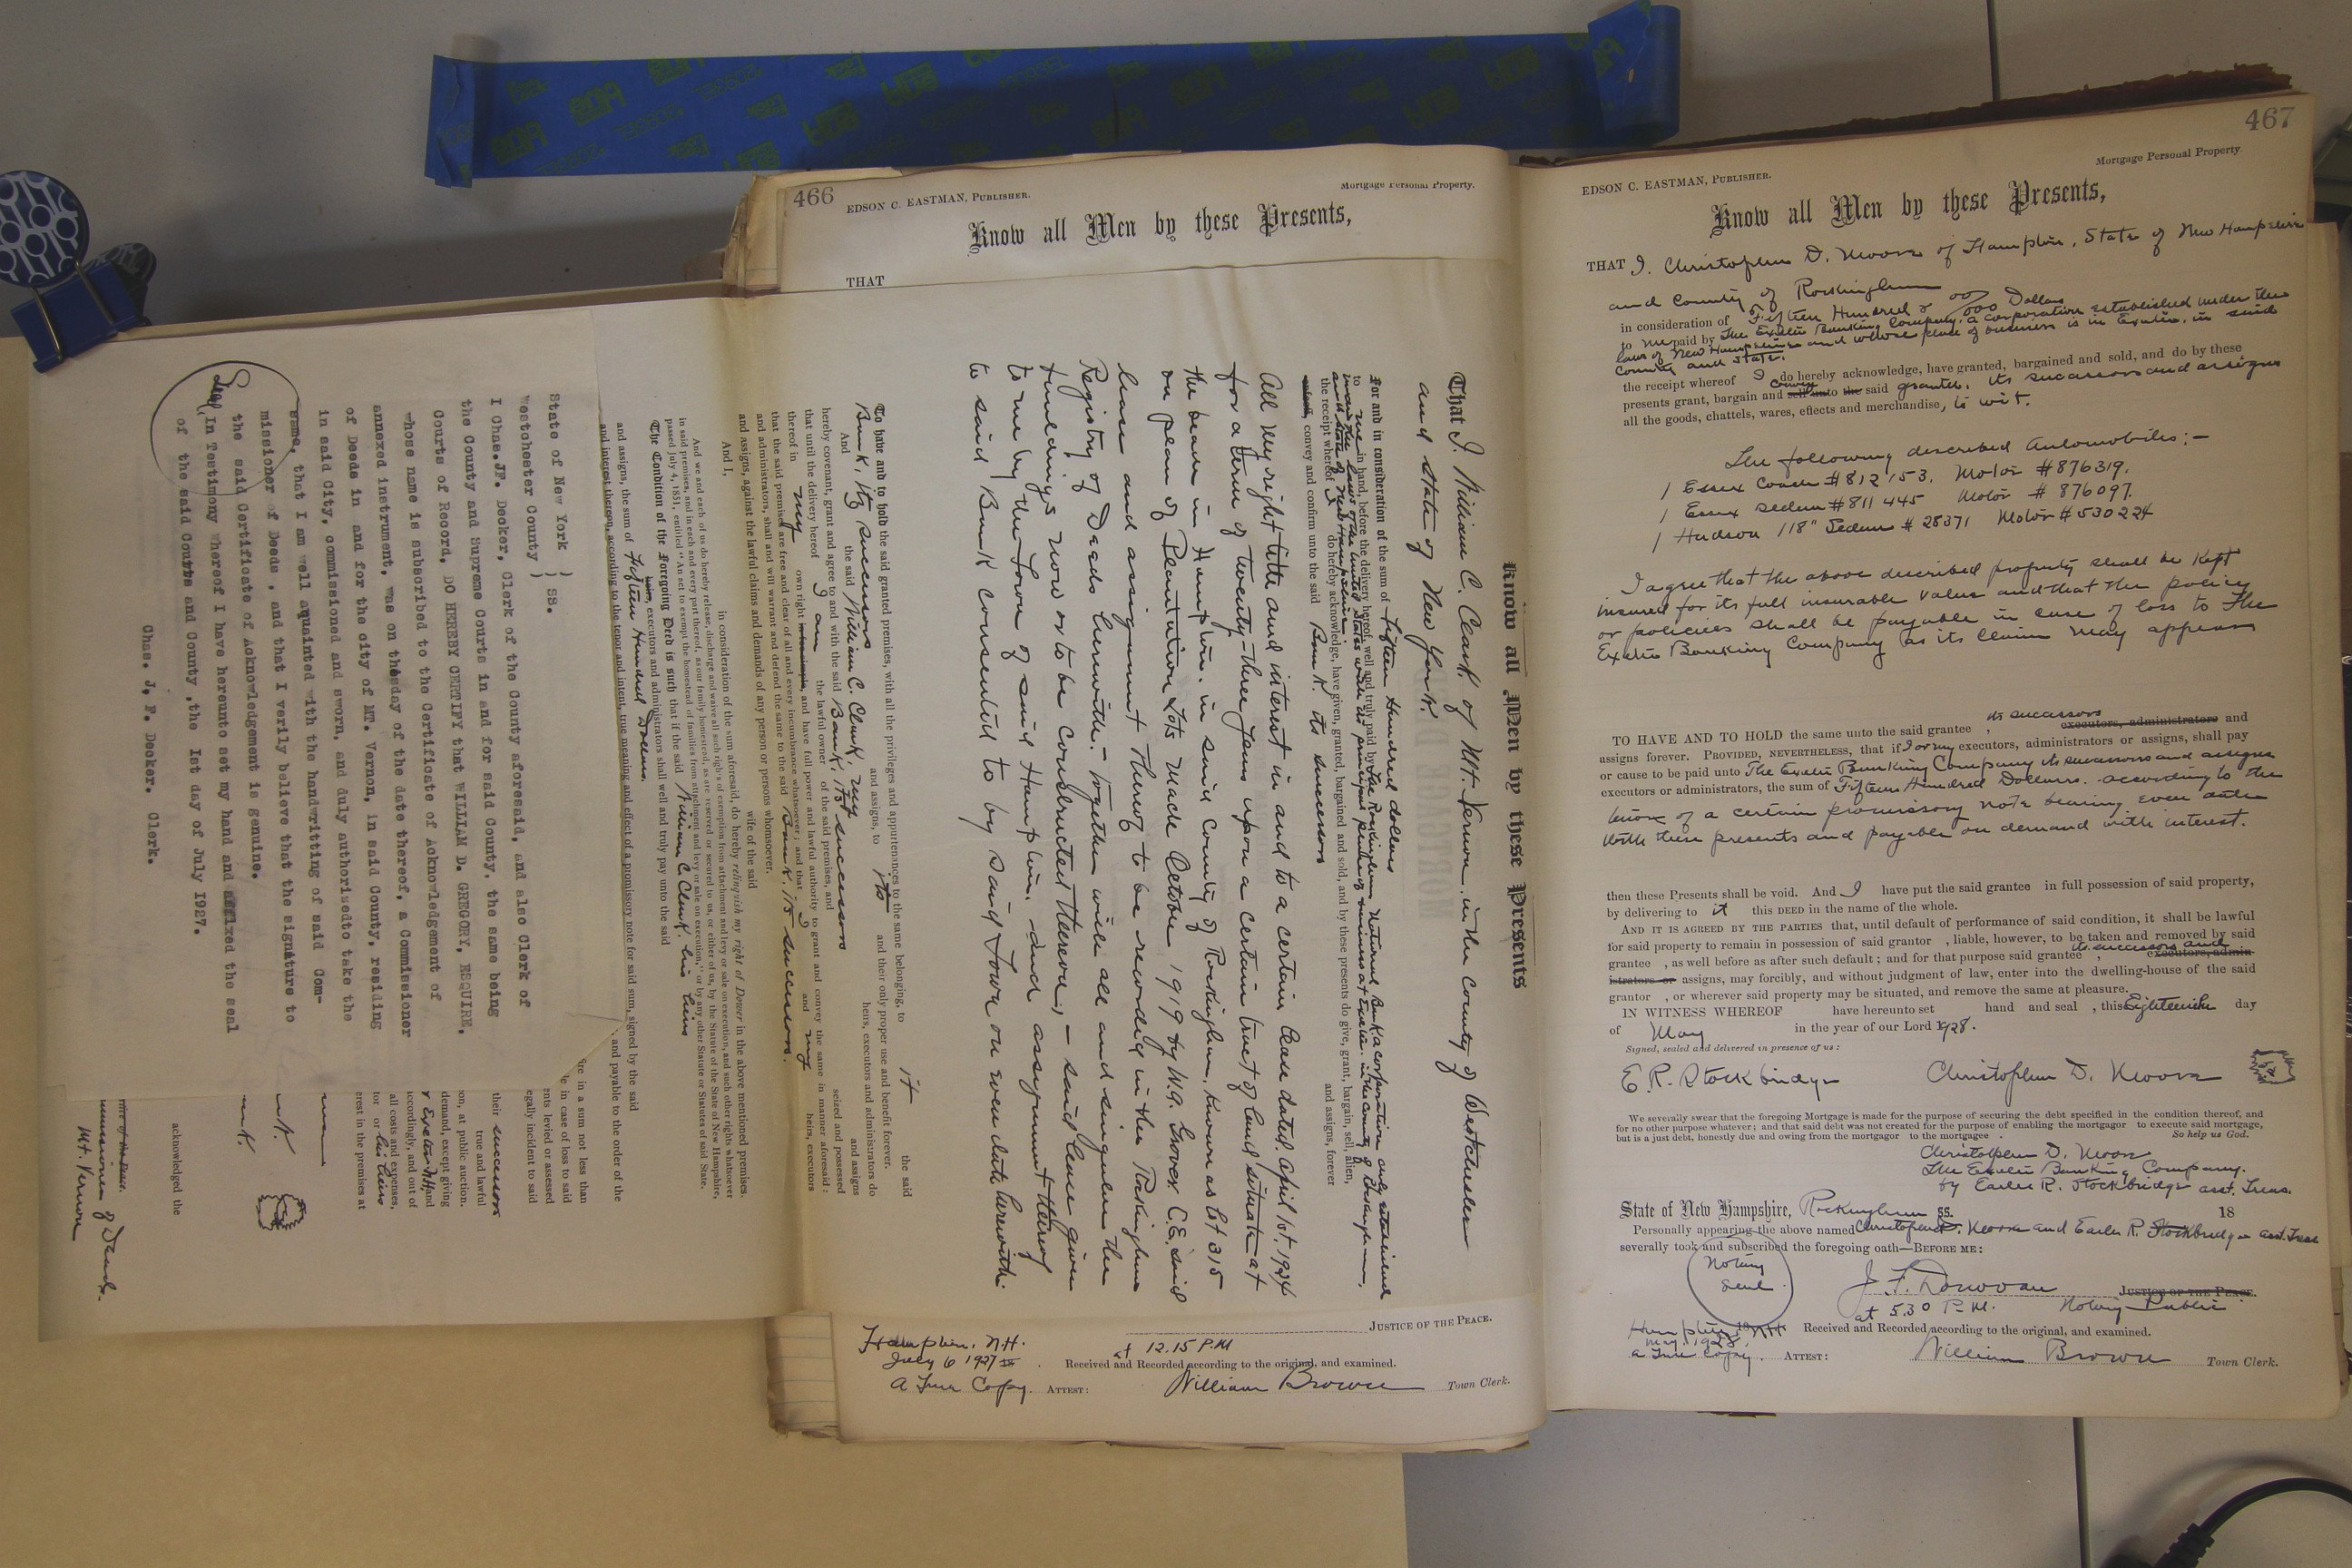 466
EDSON C. EASTMAN, PUBLISHER.
Mortgage Personal Property.
Know all Men by these Presents,
THAT
Know all Men by these Presents
That I, William C. Clark of Mt. Vernon, in the County of Westchester
and state of New York.
For and in consideration of the sum of Fifteen Hundred dollars
to me in hand, before the delivery hereof, well and truly paid by The Rockingham National Bank a corporation duly established
under the laws of the United States with its principal place of business at Exeter, in the County of Rockingham,
and State of New Hampshire
the receipt whereof I do hereby acknowledge, have given, granted, bargained and sold, and by these presents do give, grant, bargain, sell, alien,
convey and confirm unto the said Bank its successors and assigns, forever
All my right title and interest in and to a certain lease dated April 1st. 1924
for a term of twenty-three years upon a certain tract of land situate at
the beach in Hampton, in said County of Rockingham, known as lot 315
on plan of Plantation Lots made October 1919 by W.G. Grover C.E. said
lease and assignment thereof to be recorded in the Rockingham
Registry of Deeds herewith:- together with all and singular the
buildings now or to be constructed thereon, - said lease given
to me by the Town of said Hampton, and assignment thereof
to said Bank consented to by said Town on even date herewith.
To have and to hold the said granted premises, with all the privileges and appurtenances to the same belonging, to it the said
Bank, its successors and assigns, to its and their only proper use and benefit forever.
And I the said William C. Clark, my heirs, executors and administrators do
hereby covenant, grant and agree to and with the said Bank, its successors and assigns
that until the delivery hereof I am the lawful owner of the said premises, and seized and possessed
thereof in my own right and have full power and lawful authority to grant and convey the same in manner aforesaid:
that the said premises are free and clear of all and every incumbrance whatsoever; and that I and my heirs, executors
and administrators, shall and will warrant and defend the same to the said Bank, its successors.
and assigns, against the lawful claims and demands of any person or persons whomsoever.
And I, wife of the said
in consideration of the sum aforesaid, do hereby relinquish my right of Dower in the above mentioned premises.
And we and each of us do hereby release, discharge and waive all such rights of exemption from attachment and levy or sale on execution, and such other rights whatsoever
in said premises, and in each and every part thereof, as our family homestead, as are reserved or secured to us, or either of us, by the Statute of the State of New Hampshire,
passed July 4, 1851, entitled "An act to exempt the homestead of families from attachment and levy or sale on execution," or by any other Statute or Statutes of said State.
The Condition of the Foregoing Deed is such that if the said William C. Clark, his heirs
executors and administrators shall well and truly pay unto the said
and assigns, the sum of Fifteen Hundred Dollars.
and interest thereon, according to the tenor and intent, true meaning and effect of a promissory note for said sum, signed by the said
and payable to the order of the
re in a sum not less than
le in case of loss to said
ents levied or assessed
egally incident to said
their successors
true and lawful
on, at public auction.
demand, except giving
r Exeter N.H. and
ccordingly, and out of
all costs and expenses,
tor or his heirs
erest in the premises at
acknowledged the
Commissioner of Deeds.
Mt. Vernon
State of New York )
Westchester County ) SS.
I Chas.JF. Decker, Clerk of the County aforesaid, and also Clerk of
the County and Supreme Courts in and for said County, the same being
Courts of Record, DO HEREBY CERTIFY that WILLIAM D. GREGORY, ESQUIRE,
whose name is subscribed to the Certificate of Acknowledgement of
annexed instrument, was on thesday of the date thereof, a Commissioner
of Deeds in and for the city of MT. Vernon, in said County, residing
in said City, commissioned and sworn, and duly authorisedto take the
same, that I am well aquainted with the handwritting of said Com-
missioner of Deeds , and that I verily believe that the signature to
the said Certificate of Acknowledgement is genuine.
Seal In Testimony whereof I have hereunto set my hand and affixed the seal
of the said Courts and County ,the 1st day of July 1927.
Chas. J, F. Decker. Clerk.
JUSTICE OF THE PEACE.
Hampton, N.H.
July 6 1927 at 12.15 P.M
Received and Recorded according to the original, and examined.
A True Copy. ATTEST: William Brown Town Clerk.
467
EDSON C. EASTMAN, PUBLISHER.
Mortgage Personal Property.
Know all Men by these Presents,
THAT I, Christopher D. Moore of Hampton, State of New Hampshire
and County of Rockingham
in consideration of Fifteen Hundred & 00/000 Dollars
to me paid by The Exeter Banking Company, a corporation established under the
laws of New Hampshire and whose place of business is in Exeter, in said
County and State.
the receipt whereof I do hereby acknowledge, have granted, bargained and sold, and do by these
presents grant, bargain and convey sell unto the said grantee, its successors and assigns
all the goods, chattels, wares, effects and merchandise, to wit.
The following described Automobiles:-
1 Essex Coach #812153. Motor #876319.
1 Essex Sedan #811445 Motor # 876097.
1 Hudson 118" Sedan # 28371 Motor #530224
I agree that the above described property shall be kept
insured for its full insurable value and that the policy
or policies shall be payable in case of loss to The
Exeter Banking Company as its claim may appear
TO HAVE AND TO HOLD the same unto the said grantee , its successors executors, administrators and
assigns forever. PROVIDED, NEVERTHELESS, that if I or my executors, administrators or assigns, shall pay
or cause to be paid unto The Exeter Banking Company its successors and assigns
executors or administrators, the sum of Fifteen Hundred Dollars. according to the
tenor of a certain promissory note bearing even date
with these presents and payable on demand with interest.
then these Presents shall be void. And I have put the said grantee in full possession of said property,
by delivering to it this DEED in the name of the whole.
AND IT IS AGREED BY THE PARTIES that, until default of performance of said condition, it shall be lawful
for said property to remain in possession of said grantor , liable, however, to be taken and removed by said
grantee , as well before as after such default; and for that purpose said grantee , its successors and executors, admin-
istrators or assigns, may forcibly, and without judgment of law, enter into the dwelling-house of the said
grantor , or wherever said property may be situated, and remove the same at pleasure.
IN WITNESS WHEREOF have hereunto set hand and seal , this Eighteenth day
of May in the year of our Lord 1928.
Signed, sealed and delivered in presence of us:
E. R. Stockbridge Christopher D. Moore
We severally swear that the foregoing Mortgage is made for the purpose of securing the debt specified in the condition thereof, and
for no other purpose whatever; and that said debt was not created for the purpose of enabling the mortgagor to execute said mortgage,
but is a just debt, honestly due and owing from the mortgagor to the mortgagee . So help us God.
Christopher D. Moore
The Exeter Banking Company.
by Earle R. Stockbridge asst. Treas.
State of New Hampshire, Rockingham ss. 18
Personally appearing the above named Christopher D. Moore and Earle R. Stockbridge asst. Treas
severally took and subscribed the foregoing oath—BEFORE ME:
Notary
Seal
J. F. Donovan JUSTICE OF THE PEACE.
at 5.30 P.M. Notary Public
Hampton, N.H. Received and Recorded according to the original, and examined.
May, 1928
A True Copy. ATTEST: William Brown Town Clerk.